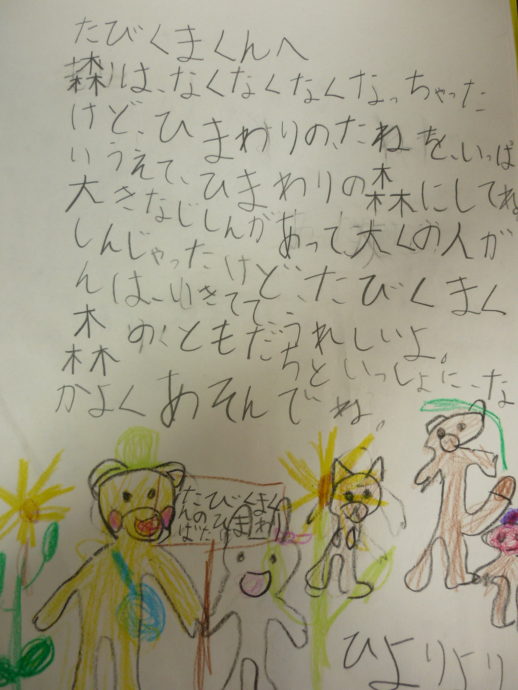 たびくまくんへ
森は、なくなくなくなっちゃった
けど、ひまわりの、たねを、いっぱ
いうえて、ひまわりの森にしてね。
大きなじしんがあって、大くの人が
しんじゃったけど、たびくまく
んは、いきてて、うれしいよ。
森のくともだちといっしょに、な
かよくあそんでね。
たびくまく
んのひまわ
ばたけ
ひよりより